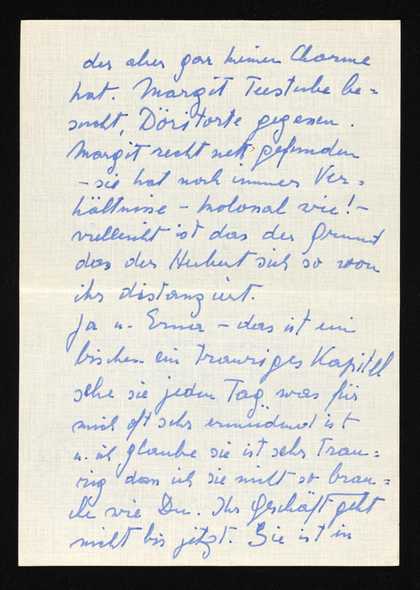 der aber gar keinen Charme
hat. Margit Teestube be=
sucht, Dörstorte gegessen.
Margit recht nett gefunden
- sie hat noch immer Ver=
hältnisse - kolosal wie! -
vielleicht ist das der Grund
das der Hubert sich so von
ihr distanziert.
Ja u. Erna - das ist ein
bischen ein trauriges Kapitell
sehe sie jeden Tag was für
mich oft sehr ermüdend ist
u. ich glaube sie ist sehr trau=
rig dass ich sie nicht so brau=
che wie Du. Ihr Geschäft geht
nicht bis jetzt. Sie ist in